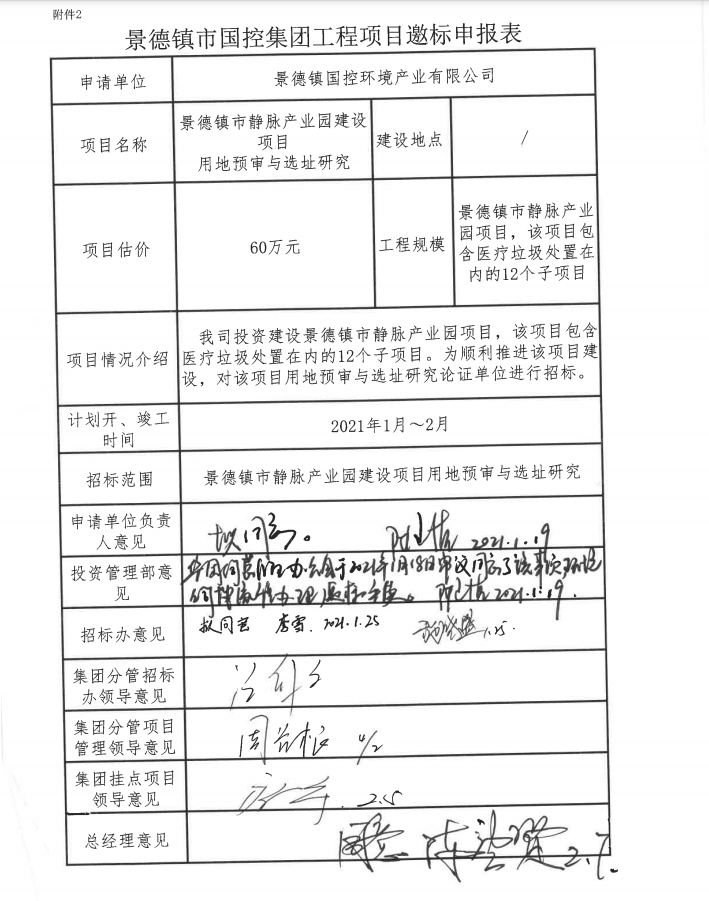 附件2
景德镇市国控集团工程项目邀标申报表
申请单位
景德镇国控环境产业有限公司
项目名称
景德镇市静脉产业园建设
项目
用地预审与选址研究
建设地点
/
项目估价
60万元
工程规模
景德镇市静脉产业
园项目，该项目包
含医疗垃圾处置在
内的12个子项目
项目情况介绍
我司投资建设景德镇市静脉产业园项目，该项目包含
医疗垃圾处置在内的12个子项目。为顺利推进该项目建
设，对该项目用地预审与选址研究论证单位进行招标。
计划开、竣工
时间
2021年1月～2月
招标范围
景德镇市静脉产业园建设项目用地预审与选址研究
申请单位负责
人意见
拟同意。
2021.1.19
投资管理部意
见
于2021年1月18日审议同意了该事项
办理邀标手续。 2021.1.19.
招标办意见
拟同意 李雪. 2021.1.25
1.25.
集团分管招标
办领导意见
集团分管项目
管理领导意见
4/2
集团挂点项目
领导意见
2.5
总经理意见
同意 2.7.